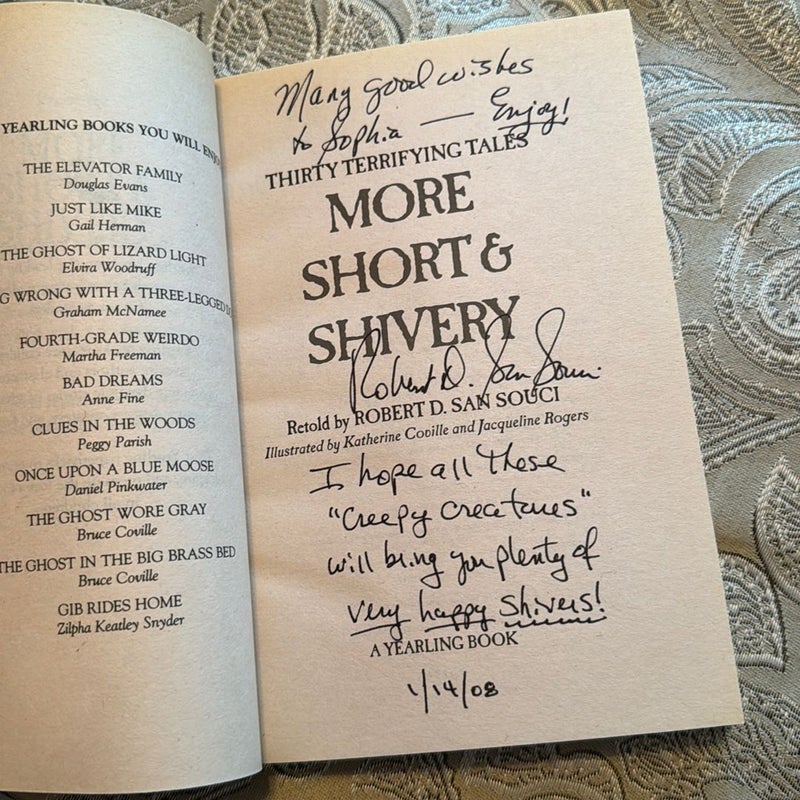 YEARLING BOOKS YOU WILL ENJO
THE ELEVATOR FAMILY
Douglas Evans
JUST LIKE MIKE
Gail Herman
THE GHOST OF LIZARD LIGHT
Elvira Woodruff
G WRONG WITH A THREE-LEGGED D
Graham McNamee
FOURTH-GRADE WEIRDO
Martha Freeman
BAD DREAMS
Anne Fine
CLUES IN THE WOODS
Peggy Parish
ONCE UPON A BLUE MOOSE
Daniel Pinkwater
THE GHOST WORE GRAY
Bruce Coville
THE GHOST IN THE BIG BRASS BED
Bruce Coville
GIB RIDES HOME
Zilpha Keatley Snyder
Many good wishes
to Sophia — Enjoy!
THIRTY TERRIFYING TALES
MORE
SHORT &
SHIVERY
Robert D. San Souci
Retold by ROBERT D. SAN SOUCI
Illustrated by Katherine Coville and Jacqueline Rogers
I hope all these
"creepy creatures"
will bring you plenty of
very happy shivers!
A YEARLING BOOK
1/14/08